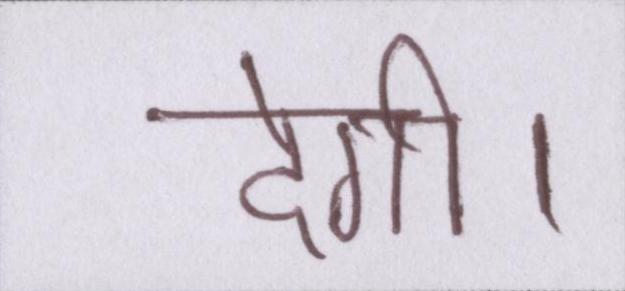 देगी।